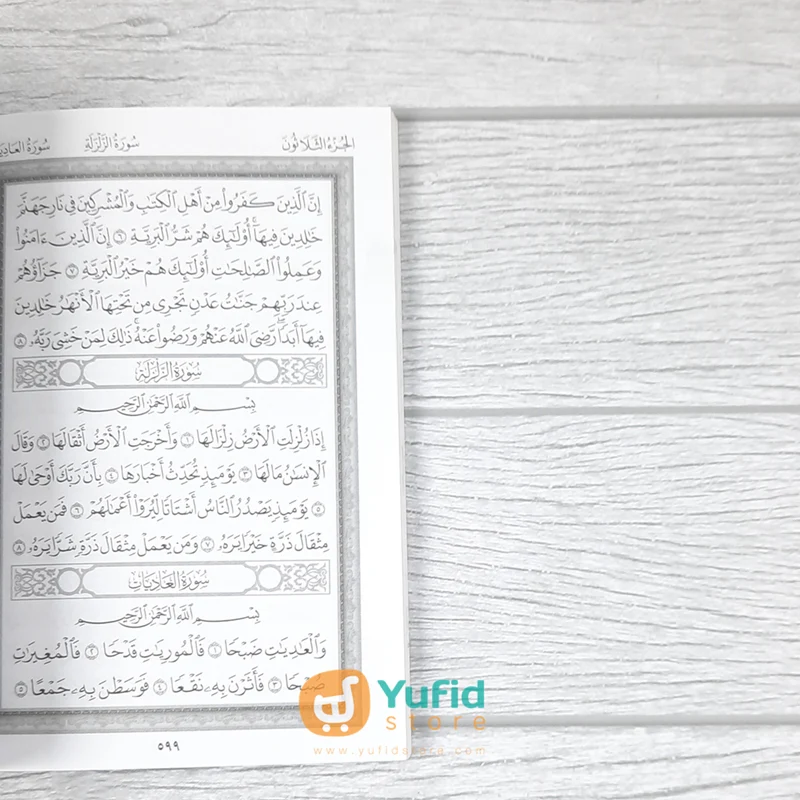 الجُزءُ الثَّلَاثُونَ سُورَةُ الزَّلْزَلَةِ سُورَةُ العَادِيَ
إِنَّ ٱلَّذِينَ كَفَرُواْ مِنۡ أَهۡلِ ٱلۡكِتَٰبِ وَٱلۡمُشۡرِكِينَ فِي نَارِ جَهَنَّمَ
خَٰلِدِينَ فِيهَآۚ أُوْلَٰٓئِكَ هُمۡ شَرُّ ٱلۡبَرِيَّةِ ٦ إِنَّ ٱلَّذِينَ ءَامَنُواْ
وَعَمِلُواْ ٱلصَّٰلِحَٰتِ أُوْلَٰٓئِكَ هُمۡ خَيۡرُ ٱلۡبَرِيَّةِ ٧ جَزَآؤُهُمۡ
عِندَ رَبِّهِمۡ جَنَّٰتُ عَدۡنٖ تَجۡرِي مِن تَحۡتِهَا ٱلۡأَنۡهَٰرُ خَٰلِدِينَ
فِيهَآ أَبَدٗاۖ رَّضِيَ ٱللَّهُ عَنۡهُمۡ وَرَضُواْ عَنۡهُۚ ذَٰلِكَ لِمَنۡ خَشِيَ رَبَّهُۥ ٨
سُورَةُ الزَّلْزَلَةِ
بِسۡمِ ٱللَّهِ ٱلرَّحۡمَٰنِ ٱلرَّحِيمِ
إِذَا زُلۡزِلَتِ ٱلۡأَرۡضُ زِلۡزَالَهَا ١ وَأَخۡرَجَتِ ٱلۡأَرۡضُ أَثۡقَالَهَا ٢ وَقَالَ
ٱلۡإِنسَٰنُ مَا لَهَا ٣ يَوۡمَئِذٖ تُحَدِّثُ أَخۡبَارَهَا ٤ بِأَنَّ رَبَّكَ أَوۡحَىٰ لَهَا
٥ يَوۡمَئِذٖ يَصۡدُرُ ٱلنَّاسُ أَشۡتَاتٗا لِّيُرَوۡاْ أَعۡمَٰلَهُمۡ ٦ فَمَن يَعۡمَلۡ
مِثۡقَالَ ذَرَّةٍ خَيۡرٗا يَرَهُۥ ٧ وَمَن يَعۡمَلۡ مِثۡقَالَ ذَرَّةٖ شَرّٗا يَرَهُۥ ٨
سُورَةُ العَادِيَاتِ
بِسۡمِ ٱللَّهِ ٱلرَّحۡمَٰنِ ٱلرَّحِيمِ
وَٱلۡعَٰدِيَٰتِ ضَبۡحٗا ١ فَٱلۡمُورِيَٰتِ قَدۡحٗا ٢ فَٱلۡمُغِيرَٰتِ
صُبۡحٗا ٣ فَأَثَرۡنَ بِهِۦ نَقۡعٗا ٤ فَوَسَطۡنَ بِهِۦ جَمۡعًا ٥
٥٩٩
Yufid
store
www.yufidstore.com